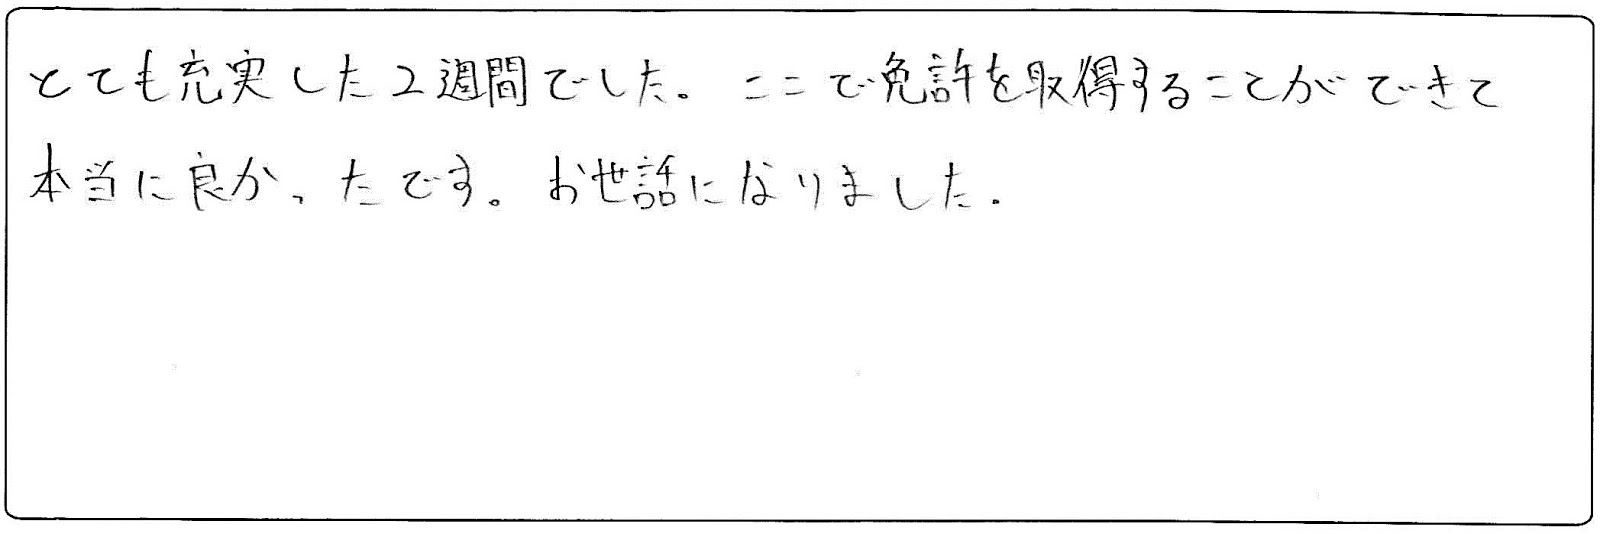 とても充実した2週間でした。ここで免許を取得することができて
本当に良かったです。お世話になりました.